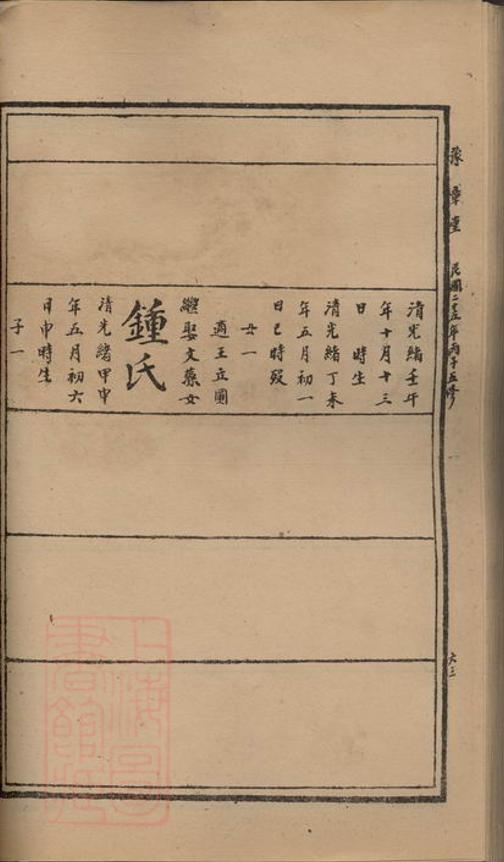 豫章堂 民國二十五年丙子五修
六三
清光緒壬午
年十月十三
日 時生
清光緒丁未
年五月初一
日巳時殁
女一
適王立圃
繼娶文蔡女
鍾氏
清光緒甲申
年五月初六
日申時生
子一
上海圖
書館藏